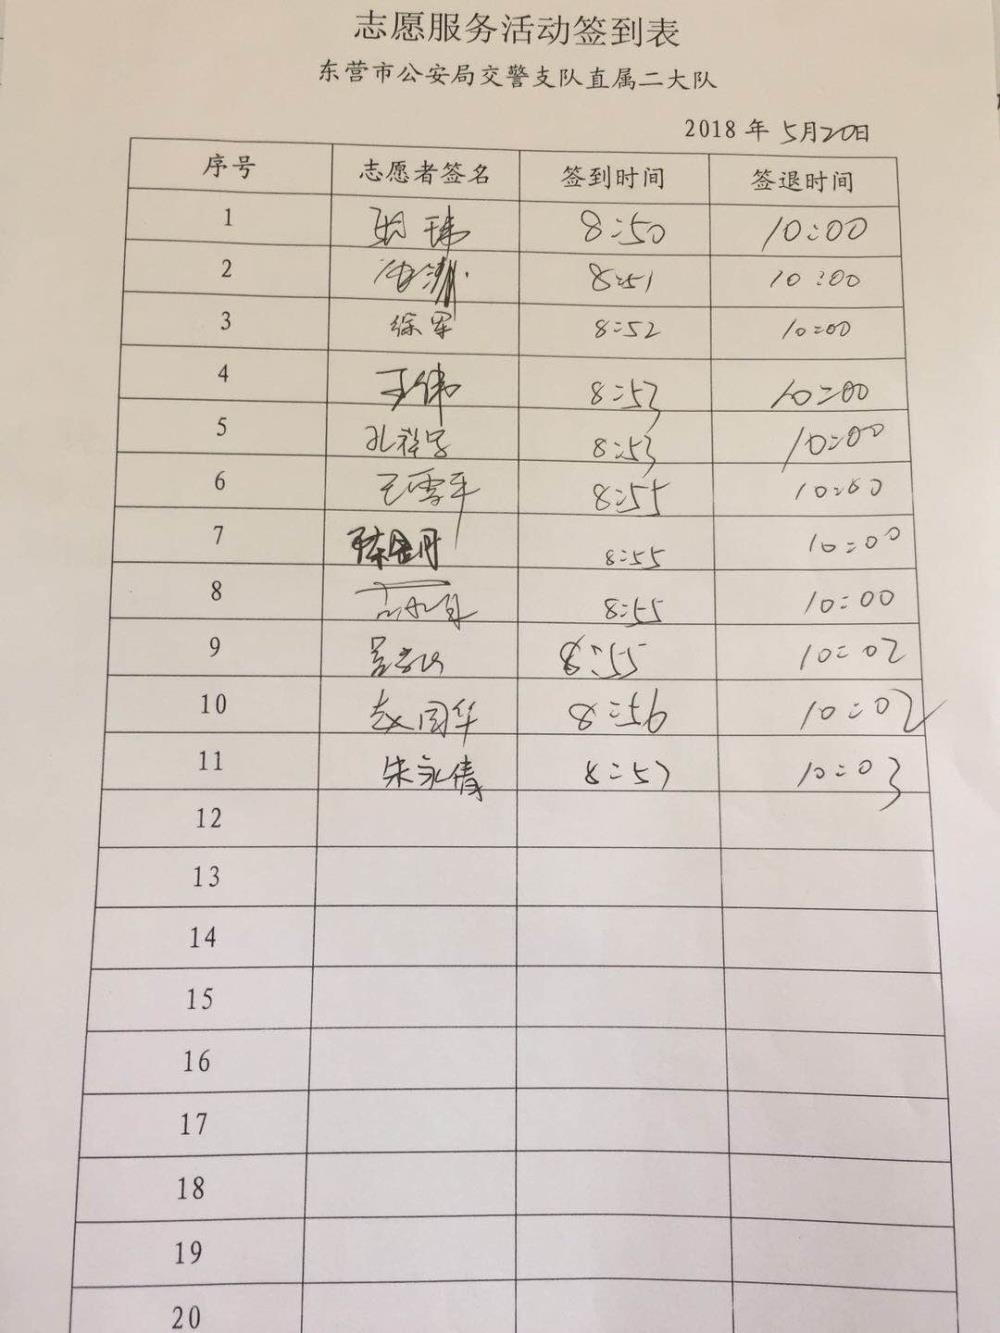 志愿服务活动签到表
东营市公安局交警支队直属二大队
2018 年 5月20日
序号 志愿者签名 签到时间 签退时间
1 8:50 10:00
2 8:51 10:00
3 徐军 8:52 10:00
4 王伟 8:53 10:00
5 孔祥学 8:53 10:00
6 王雪平 8:55 10:00
7 8:55 10:00
8 8:55 10:00
9 8:55 10:02
10 赵国华 8:56 10:02
11 朱永倩 8:57 10:03
12
13
14
15
16
17
18
19
20